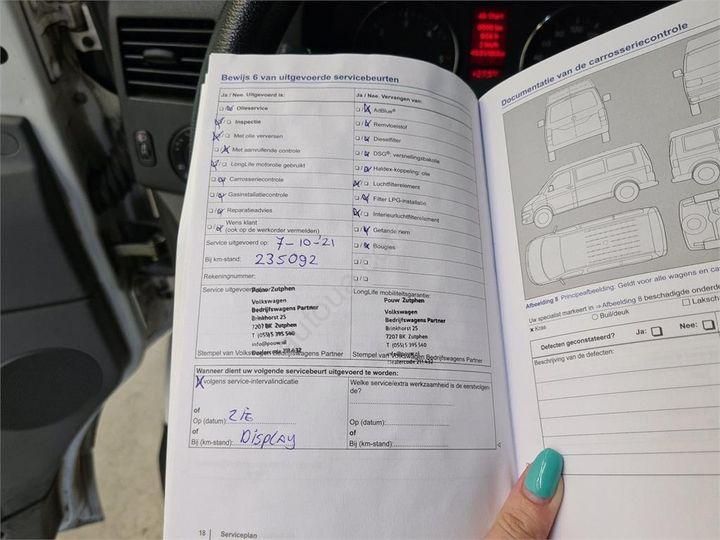 Bewijs 6 van uitgevoerde servicebeurten
Ja / Nee. Uitgevoerd is:
Olieservice
Inspectie
Met olie verversen
Met aanvullende controle
LongLife motorolie gebruikt
Carrosseriecontrole
Gasinstallatiecontrole
Reparatieadvies
Wens klant
(ook op de werkorder vermelden)
Service uitgevoerd op: 7-10-'21
Bij km-stand: 235092
Rekeningnummer:
Service uitgevoerd
Pouw Zutphen
Volkswagen
Bedrijfswagens Partner
Brinkhorst 25
7207 BK Zutphen
T (055) 5 395 540
info@pouw.nl
Dealercode 211.432
Stempel van Volkswagen Bedrijfswagens Partner
Ja / Nee. Vervangen van:
AdBlue®
Remvloeistof
Dieselfilter
DSG®, versnellingsbakolie
Haldex-koppeling: olie
Luchtfilterelement
Filter LPG-installatie
Interieurluchtfilterelement
Getande riem
Bougies
LongLife mobiliteitsgarantie:
Pouw Zutphen
Volkswagen
Bedrijfswagens Partner
Brinkhorst 25
7207 BK Zutphen
T (055) 5 395 540
info@pouw.nl
Dealercode 211.432
Stempel van Volkswagen Bedrijfswagens Partner
Wanneer dient uw volgende servicebeurt uitgevoerd te worden:
volgens service-intervalindicatie
of
Op (datum): zie
of
Bij (km-stand): Display
Welke service/extra werkzaamheid is de eerstvolgen
de?
Op (datum):
of
Bij (km-stand):
18 Serviceplan
Documentatie van de carrosseriecontrole
Afbeelding 8 Principeafbeelding. Geldt voor alle wagens en
Uw specialist markeert in ⇒ Afbeelding 8 beschadigde onderde
x Kras
Buil/deuk
Laksch
Defecten geconstateerd? Ja: Nee:
Beschrijving van de defecten: